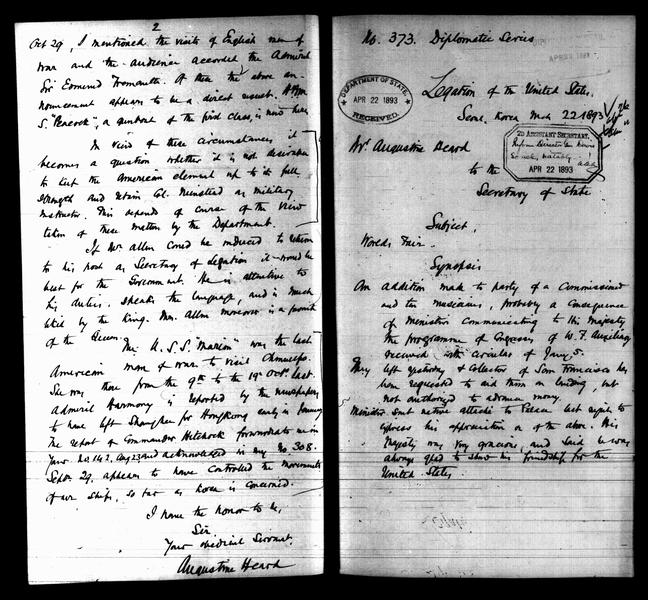 2
Oct 29, I mentioned the visits of English men of
war and the audience accorded the Admiral
Sir Edmund Fremantle. Of these the above an-
nouncement appears to be a direct result. H.B.M.
S. "Peacock", a gunboat of the first class, is now here.
In view of these circumstances it
becomes a question whether it is not desirable
to keep the American element up to its full
strength and retain Col. Nienstead as military
instructor. This depends of course of the view
taken of these matters by the Department.
If Mr Allen could be induced to return
to his post as Secretary of Legation it would be
best for the Government. He is attentive to
his duties, speaks the language, and is much
liked by the King. Mrs. Allen moreover is a favorite
of the Queen.
The U.S.S. "Marion" was the last
American man of war to visit Chemulpo.
She was there from the 9th to the 19 Octr last.
Admiral Harmony is reported by the newspapers
to have left Shanghai for Hongkong early in January
The report of Commander Hitchcock forwarded me in
Your No. 142, Aug 23 and acknowledged in my No. 308.
Septr 29. appears to have controlled the movements
of our ships, so far as Korea is concerned.
I have the honor to be,
Sir
Your obedient Servant.
Augustine Heard
No. 373. Diplomatic Series
APR 22 1893
Legation of the United States,
Seoul, Korea Mch 22 1893
DEPARTMENT OF STATE.
APR 22 1893
RECEIVED.
2D ASSISTANT SECRETARY.
APR 22 1893
Mr Augustine Heard
to the
Secretary of State
Subject.
Worlds Fair.
Synopsis
An addition made to party of a Commissioner
and ten musicians, probably a consequence
of Minister Communicating to His Majesty
the programme of Congresses of W. F. Auxiliary
received with circular of Jany 5.
They left yesterday & Collector of San Francisco has
been requested to aid them on landing, but
not authorized to advance money.
Minister sent native attaché to Palace last night to
express his appreciation of the above. His
Majesty was very gracious, and said he was
always glad to show his friendship for the
United States